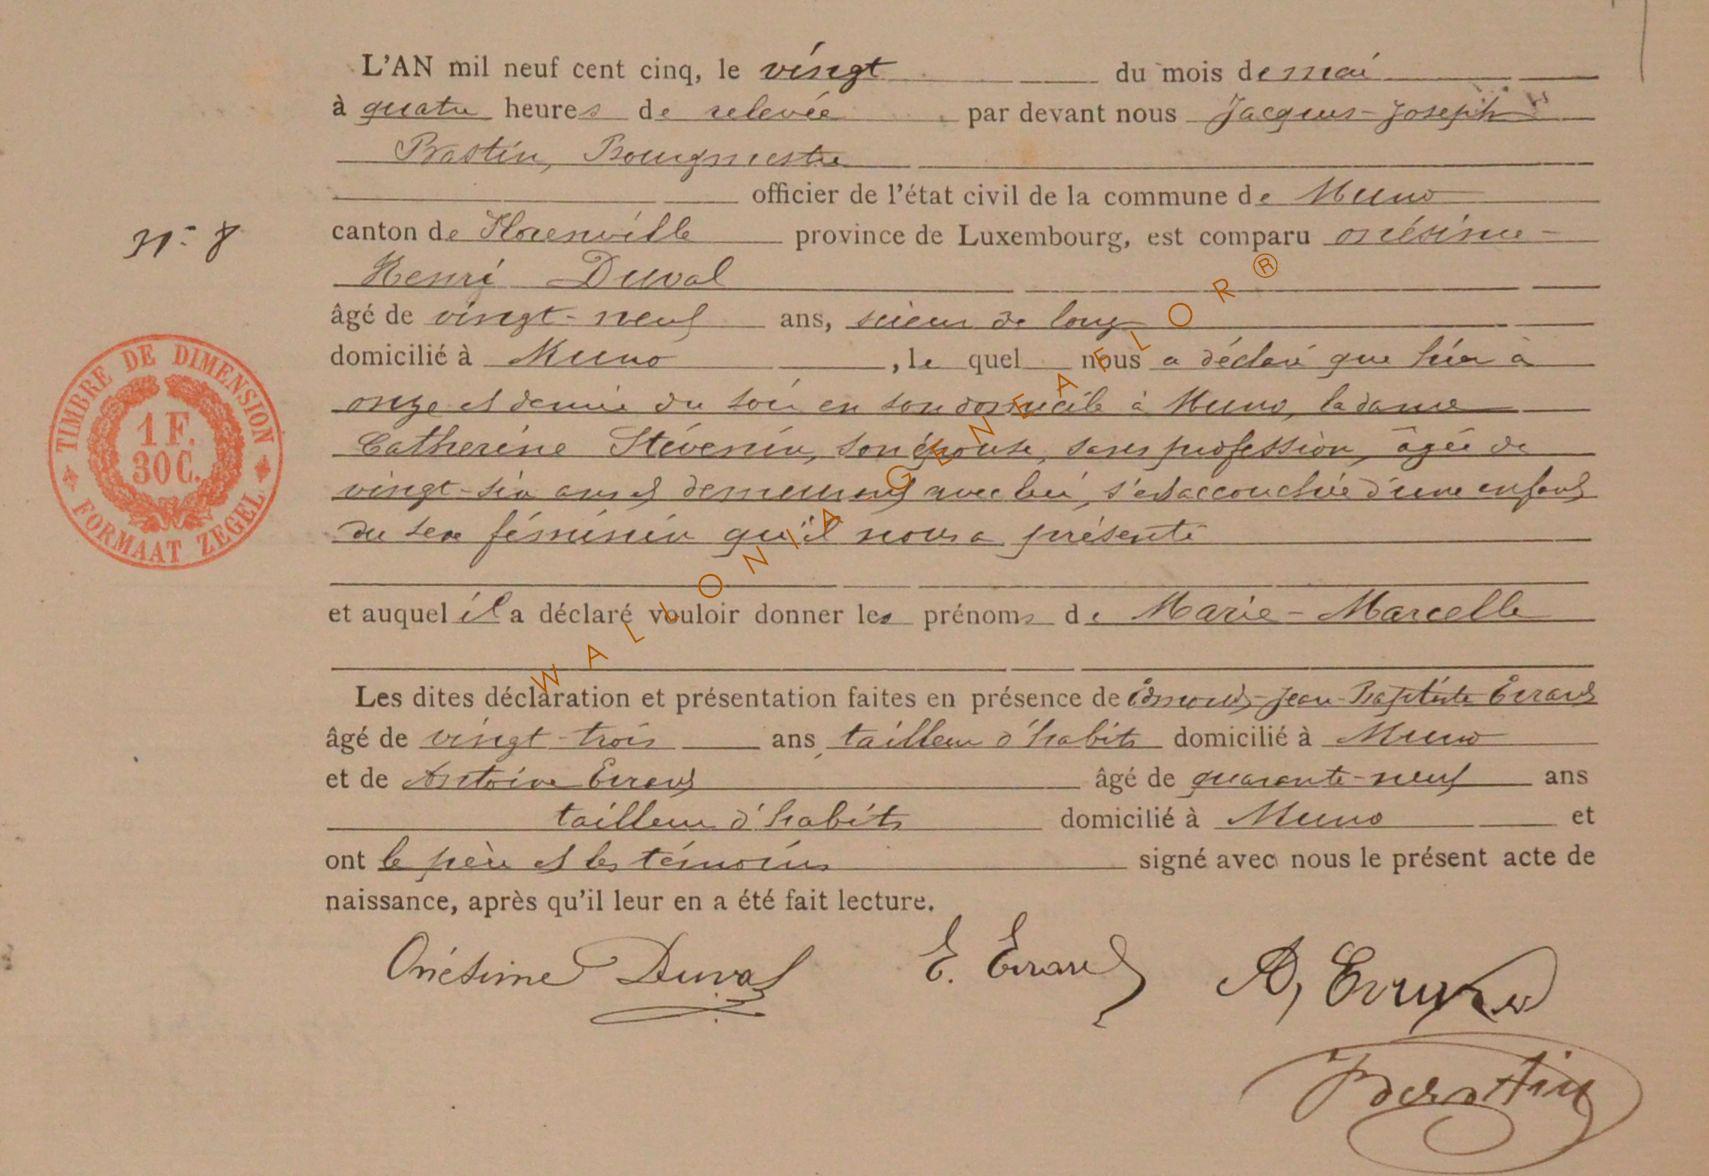 L'AN mil neuf cent cinq, le vingt du mois de mai
à quatre heures de relevée par devant nous Jacques-Joseph
Bastin, Bourgmestre
officier de l'état civil de la commune de Muno
N° 8
canton de Florenville province de Luxembourg, est comparu onésime-
Henri Duval
âgé de vingt-neuf ans, scieur de long
domicilié à Muno, le quel nous a déclaré que hier à
onze et demie du soir en son domicile à Muno, la dame
Catherine Stévenin, son épouse, sans profession, âgée de
vingt-six ans et demeurant avec lui, s'est accouchée d'une enfant
du sexe féminin qu'il nous a présenté
et auquel il a déclaré vouloir donner les prénoms de Marie-Marcelle
Les dites déclaration et présentation faites en présence de Edmond-Jean-Baptiste Evrard
âgé de vingt-trois ans, tailleur d'habits domicilié à Muno
et de Antoine Evrard âgé de quarante-neuf ans
tailleur d'habits domicilié à Muno et
ont le père et les témoins signé avec nous le présent acte de
naissance, après qu'il leur en a été fait lecture.
Onésime Duval E. Evrard A, Evrard
Bastin
TIMBRE DE DIMENSION
1 F.
30 C.
FORMAAT ZEGEL
WALLONIA GENEAFLOR ®